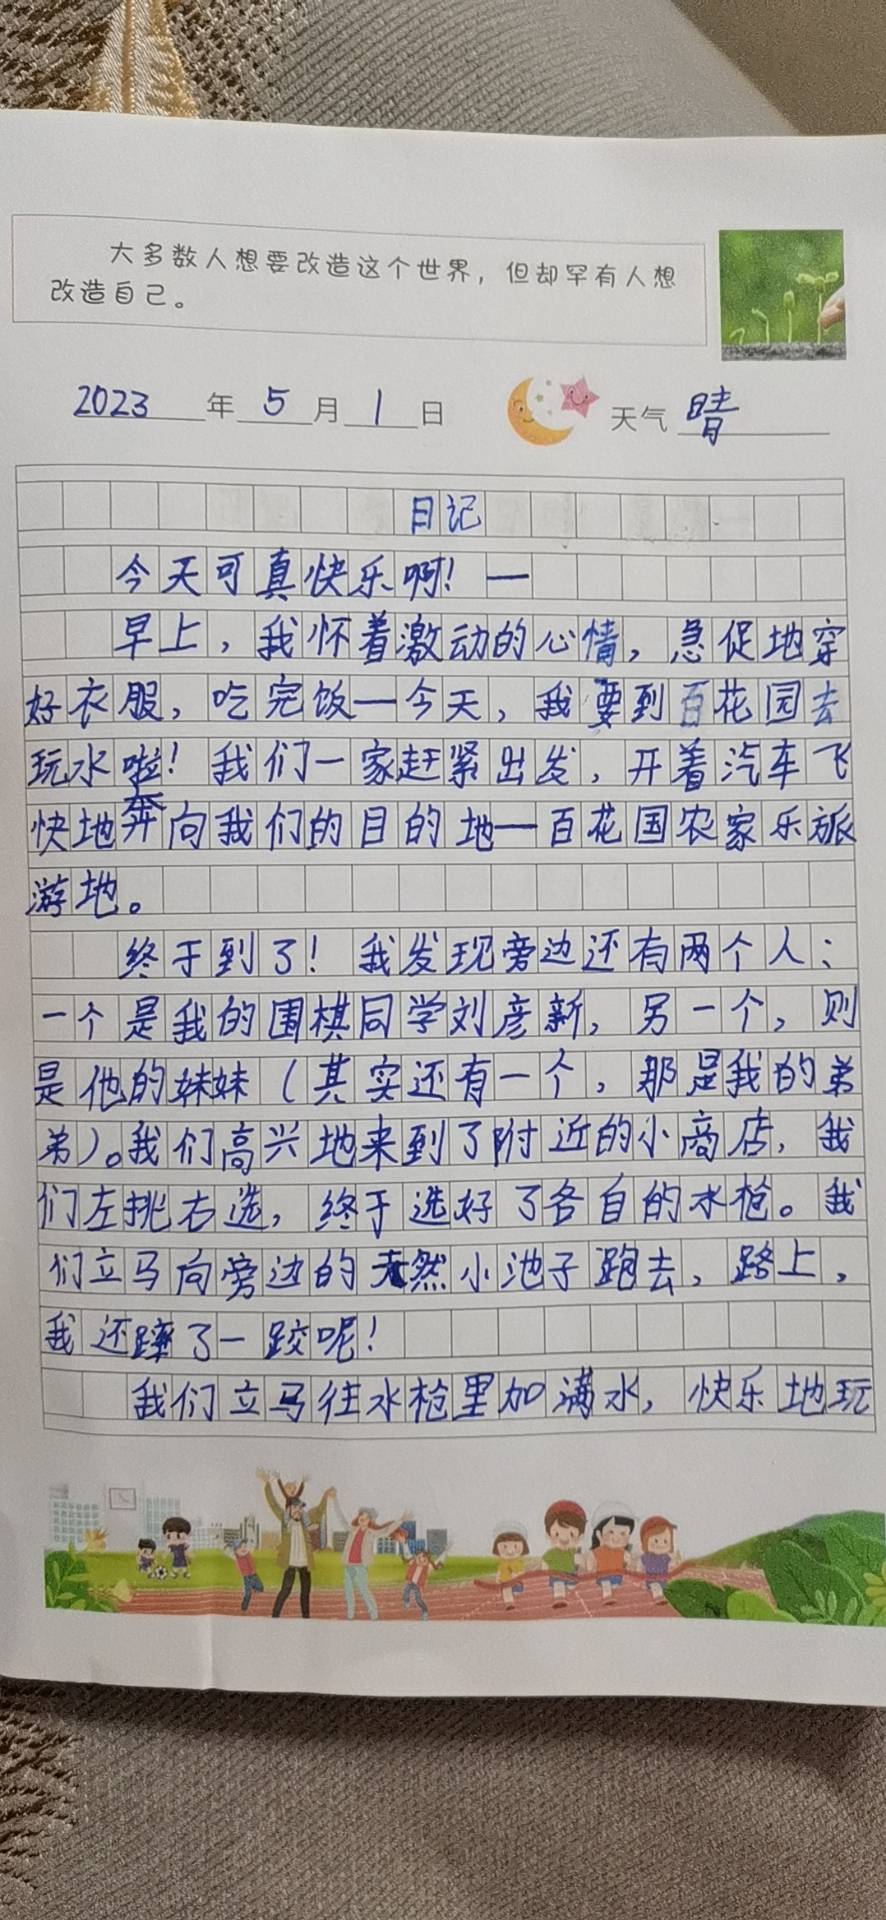 大多数人想要改造这个世界，但却罕有人想
改造自己。
2023年5月1日 天气 晴
日记
今天可真快乐啊！一
早上，我怀着激动的心情，急促地穿
好衣服，吃完饭—今天，我要到百花园去
玩水啦！我们一家赶紧出发，开着汽车飞
快地奔向我们的目的地—百花国农家乐旅
游地。
终于到了！我发现旁边还有两个人：
一个是我的围棋同学刘彦新，另一个，则
是他的妹妹（其实还有一个，那是我的弟
弟）。我们高兴地来到了附近的小商店，我
们左挑右选，终于选好了各自的水枪。我
们立马向旁边的天然小池子跑去，路上，
我还摔了一跤呢！
我们立马往水枪里加满水，快乐地玩